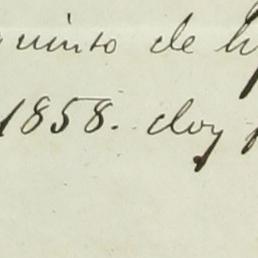 quinto de
1858. doy